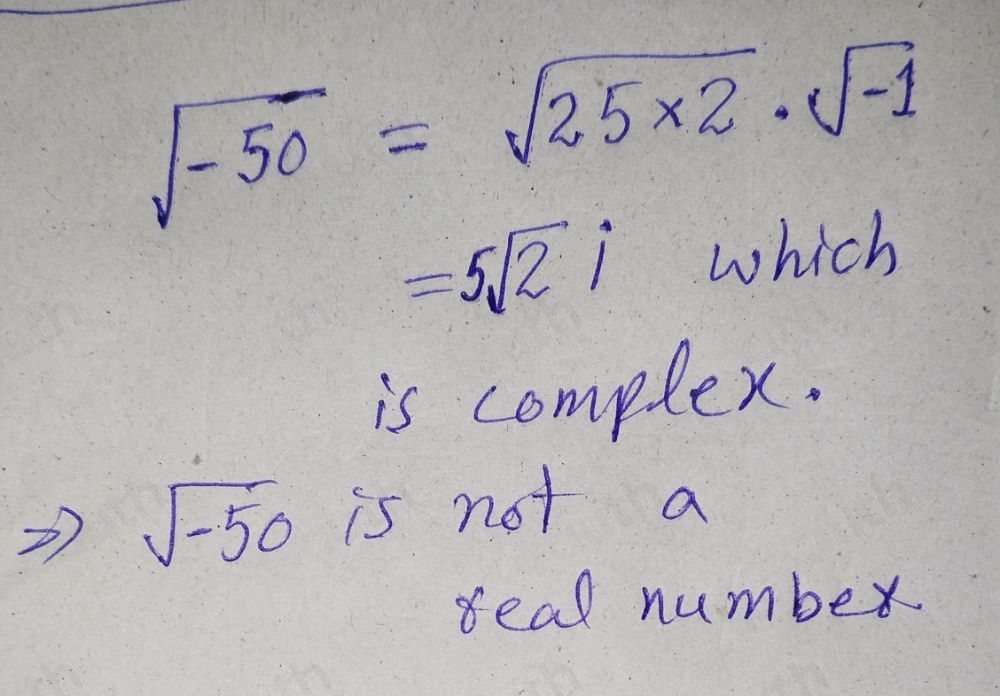 √-50 = √25×2 . √-1
= 5√2 i which
is complex.
⇒ √-50 is not a
real number